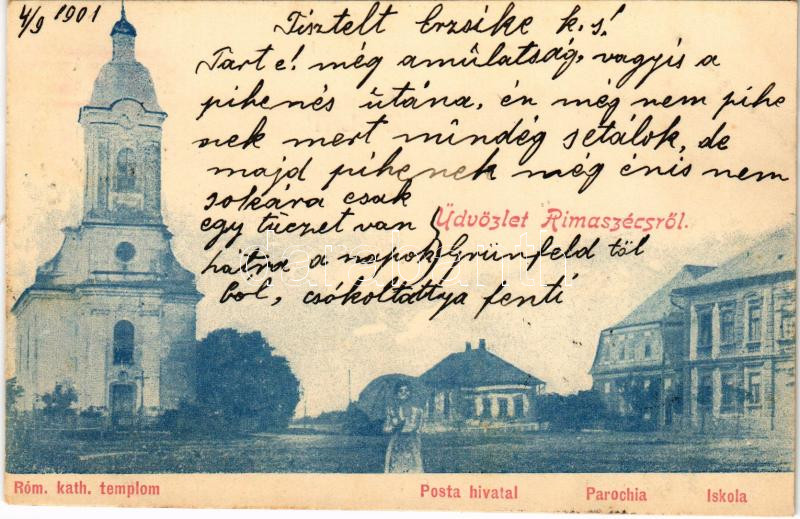 4/9 1901
Tisztelt Erzsike k.s!
Tart e! még a mûlatság, vagyis a
pihenés ûtána, én még nem pihe
nek mert mindég setálok, de
majd pihenek még énis nem
sokára csak
egy tüczet van
Üdvözlet Rimaszécsről.
hátra a napok
Grünfeld töl
bol, csókoltattya fenti
darabanth
Róm. kath. templom
Posta hivatal
Parochia
Iskola